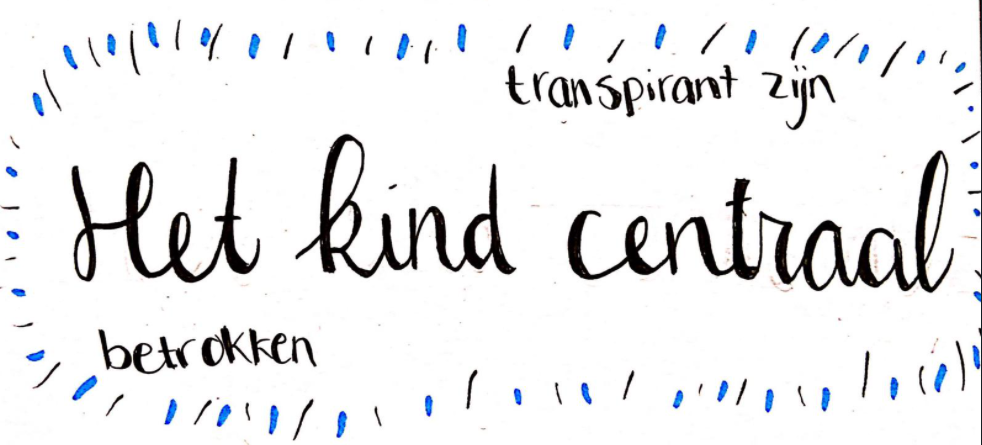 transpirant zijn
Het kind centraal
betrokken